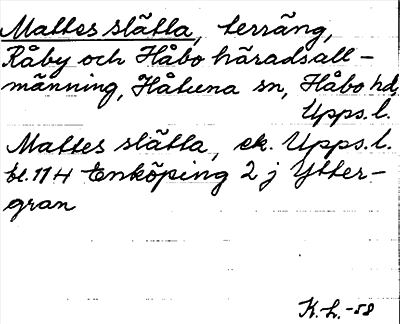 Mattes slätla, terräng,
Råby och Håbo häradsall-
männing, Håtuna sn, Håbo hd,
Upps.l.
Mattes slätla, ek. Upps.l.
bl.114 Enköping 2 j Ytter-
gran
K.L.-58